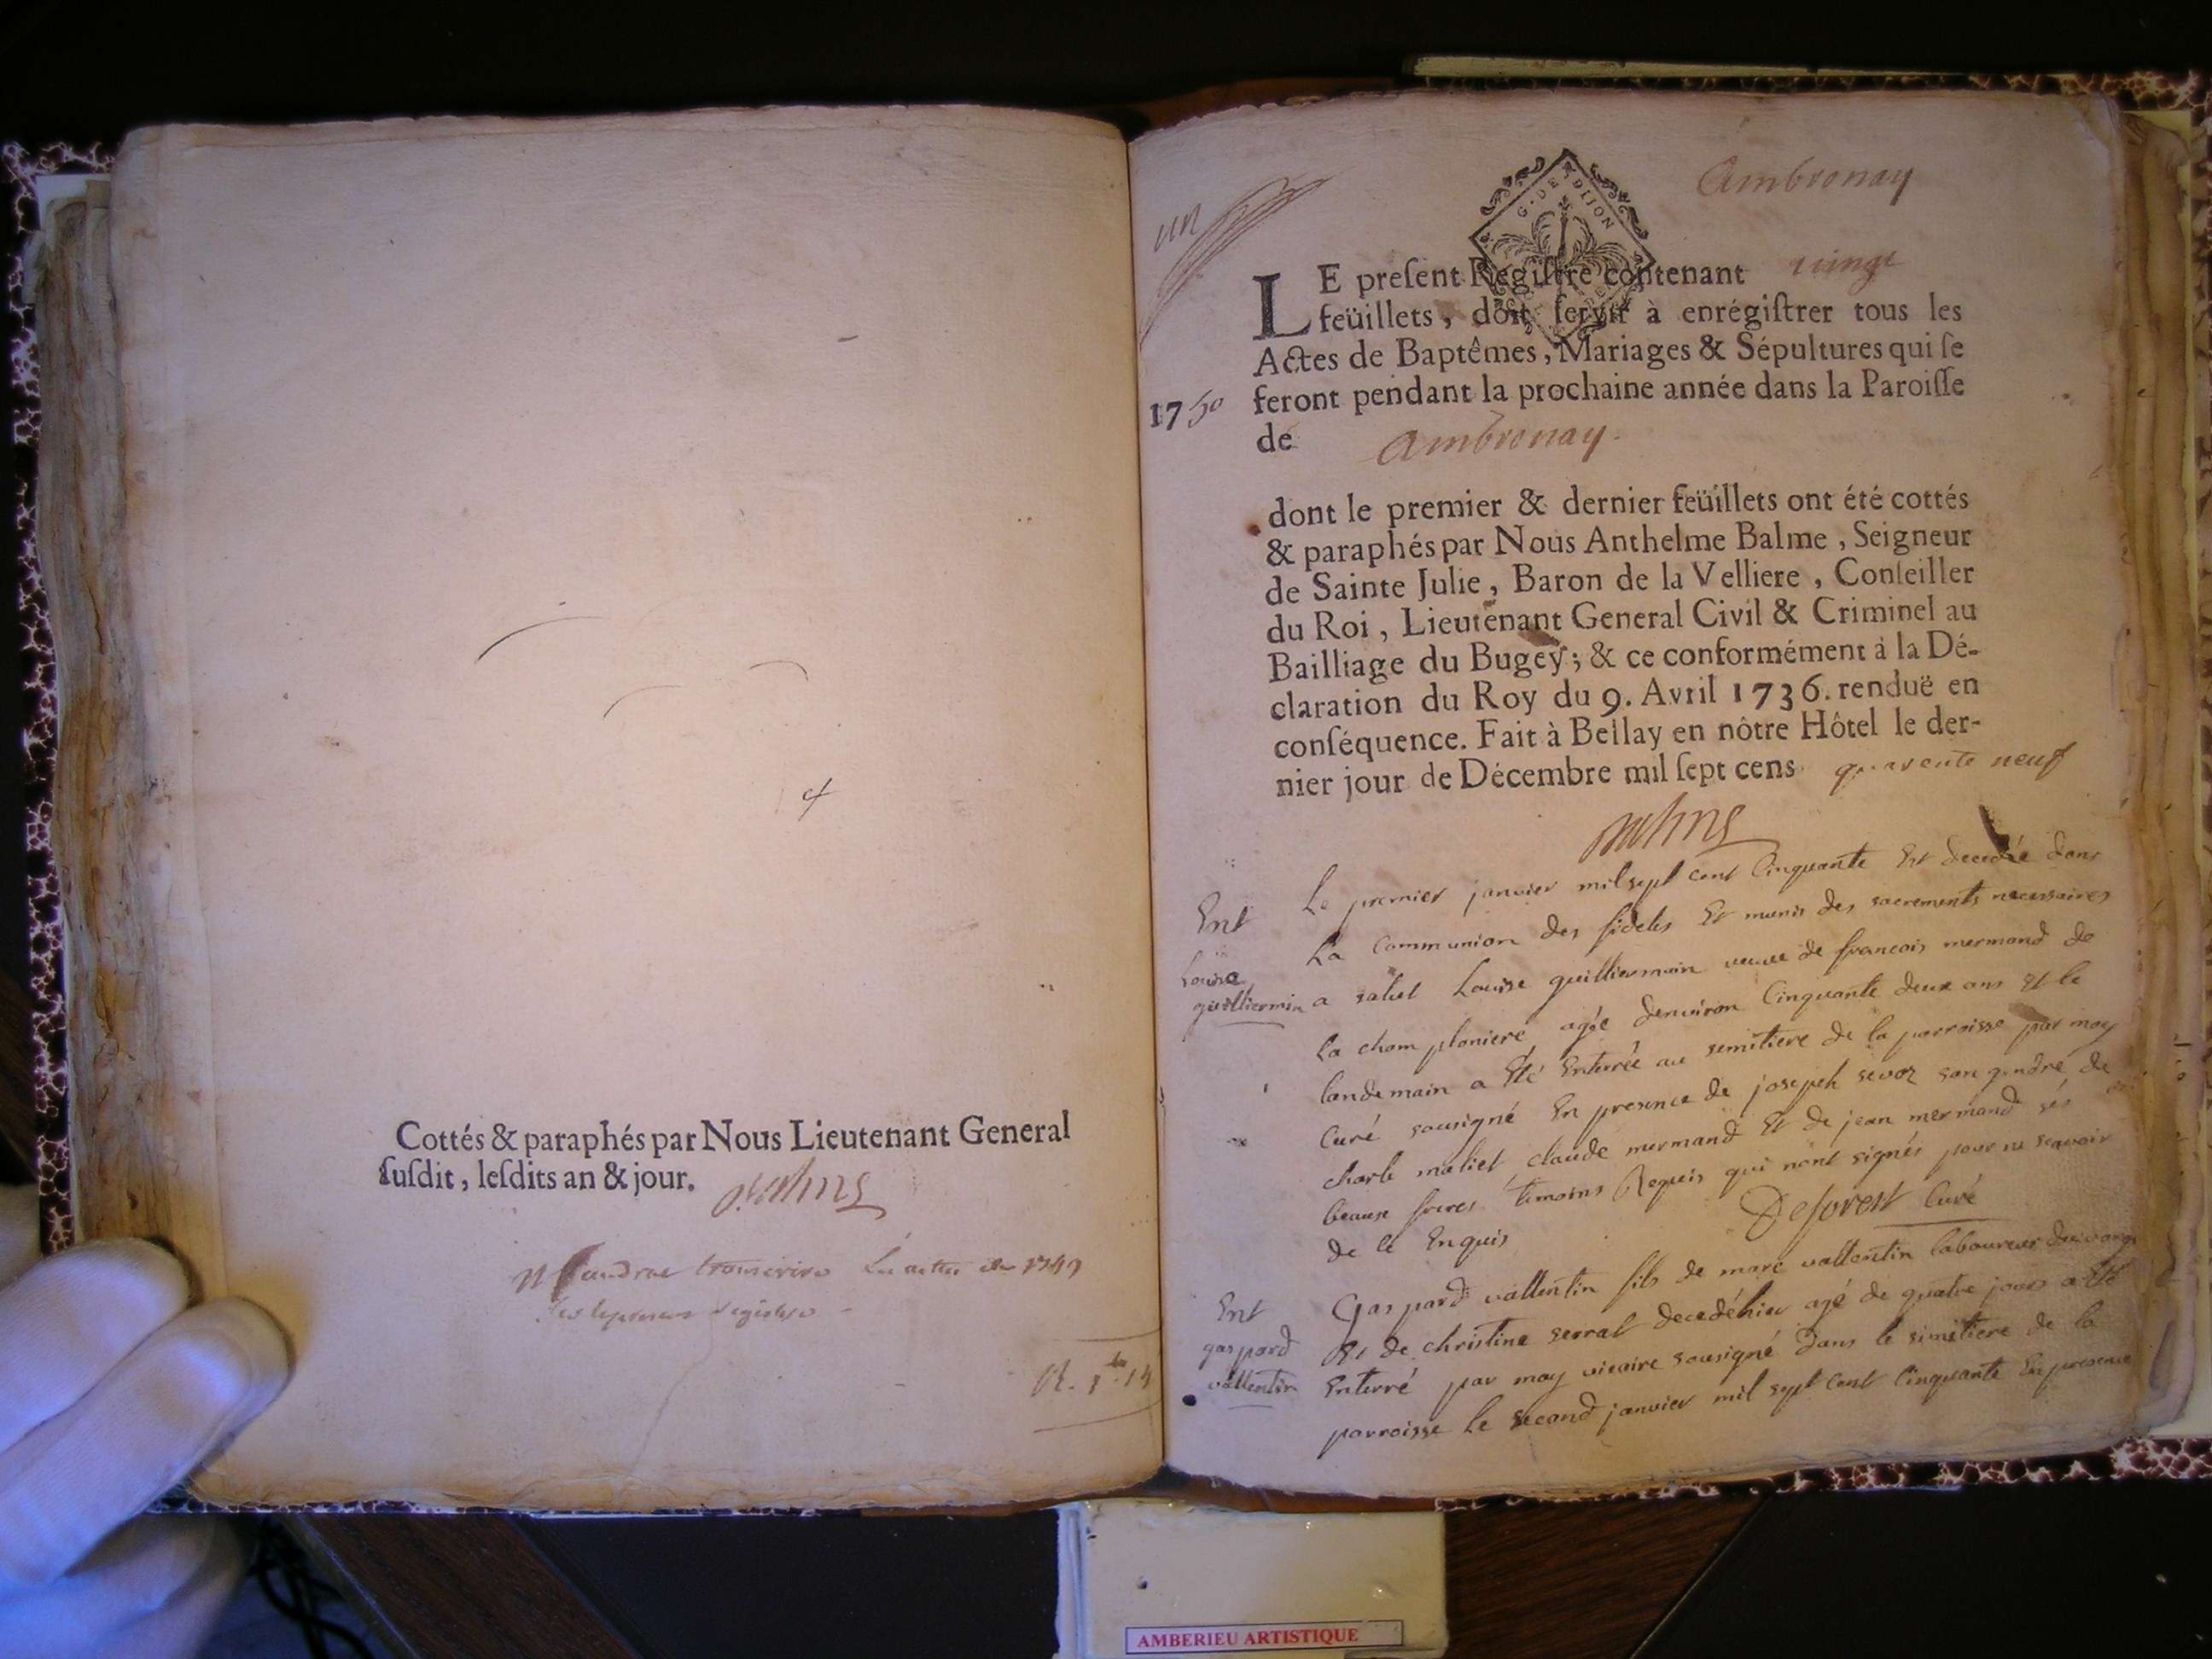 Cottés & paraphés par Nous Lieutenant General
ſuſdit, leſdits an & jour.
Les actes de 1749
un
G. DE DIJON
Ambronay
LE preſent Regiſtre contenant vingt
feüillets, doit ſervir à enrégiſtrer tous les
Actes de Baptêmes, Mariages & Sépultures qui ſe
1750 feront pendant la prochaine année dans la Paroiſſe
de Ambronay.
dont le premier & dernier feüillets ont été cottés
& paraphés par Nous Anthelme Balme, Seigneur
de Sainte Julie, Baron de la Velliere, Conſeiller
du Roi, Lieutenant General Civil & Criminel au
Bailliage du Bugey; & ce conformément à la Dé-
claration du Roy du 9. Avril 1736. renduë en
conſéquence. Fait à Bellay en nôtre Hôtel le der-
nier jour de Décembre mil ſept cens quarente neuf
Ent
Louise
guilliermin
Le premier janvier mil sept cent Cinquante Est decedée dans
La Communion des fideles Et munis des sacrements necessaires
a salut Louise guilliermin veuve de francois mermand de
La champlaniere agée denviron Cinquante deux ans Et le
landemain a Eté Enterrée au semitiere de la parroisse par moy
Curé sousigné En presence de joseph sevoz son gendre de
charle maliet claude mermand Et de jean mermand ses
beaux freres temoins Requis qui nont signés pour ne scavoir
de ce Enquis
Deforest Curé
Ent
gaspard
vallentin
Gaspard vallentin fils de marc vallentin laboureur
Et de christine serrat decedé hier agé de quatre jours a Eté
Enterré par moy vicaire sousigné Dans le simitiere de la
parroisse Le second janvier mil sept cent Cinquante En presence
AMBERIEU ARTISTIQUE